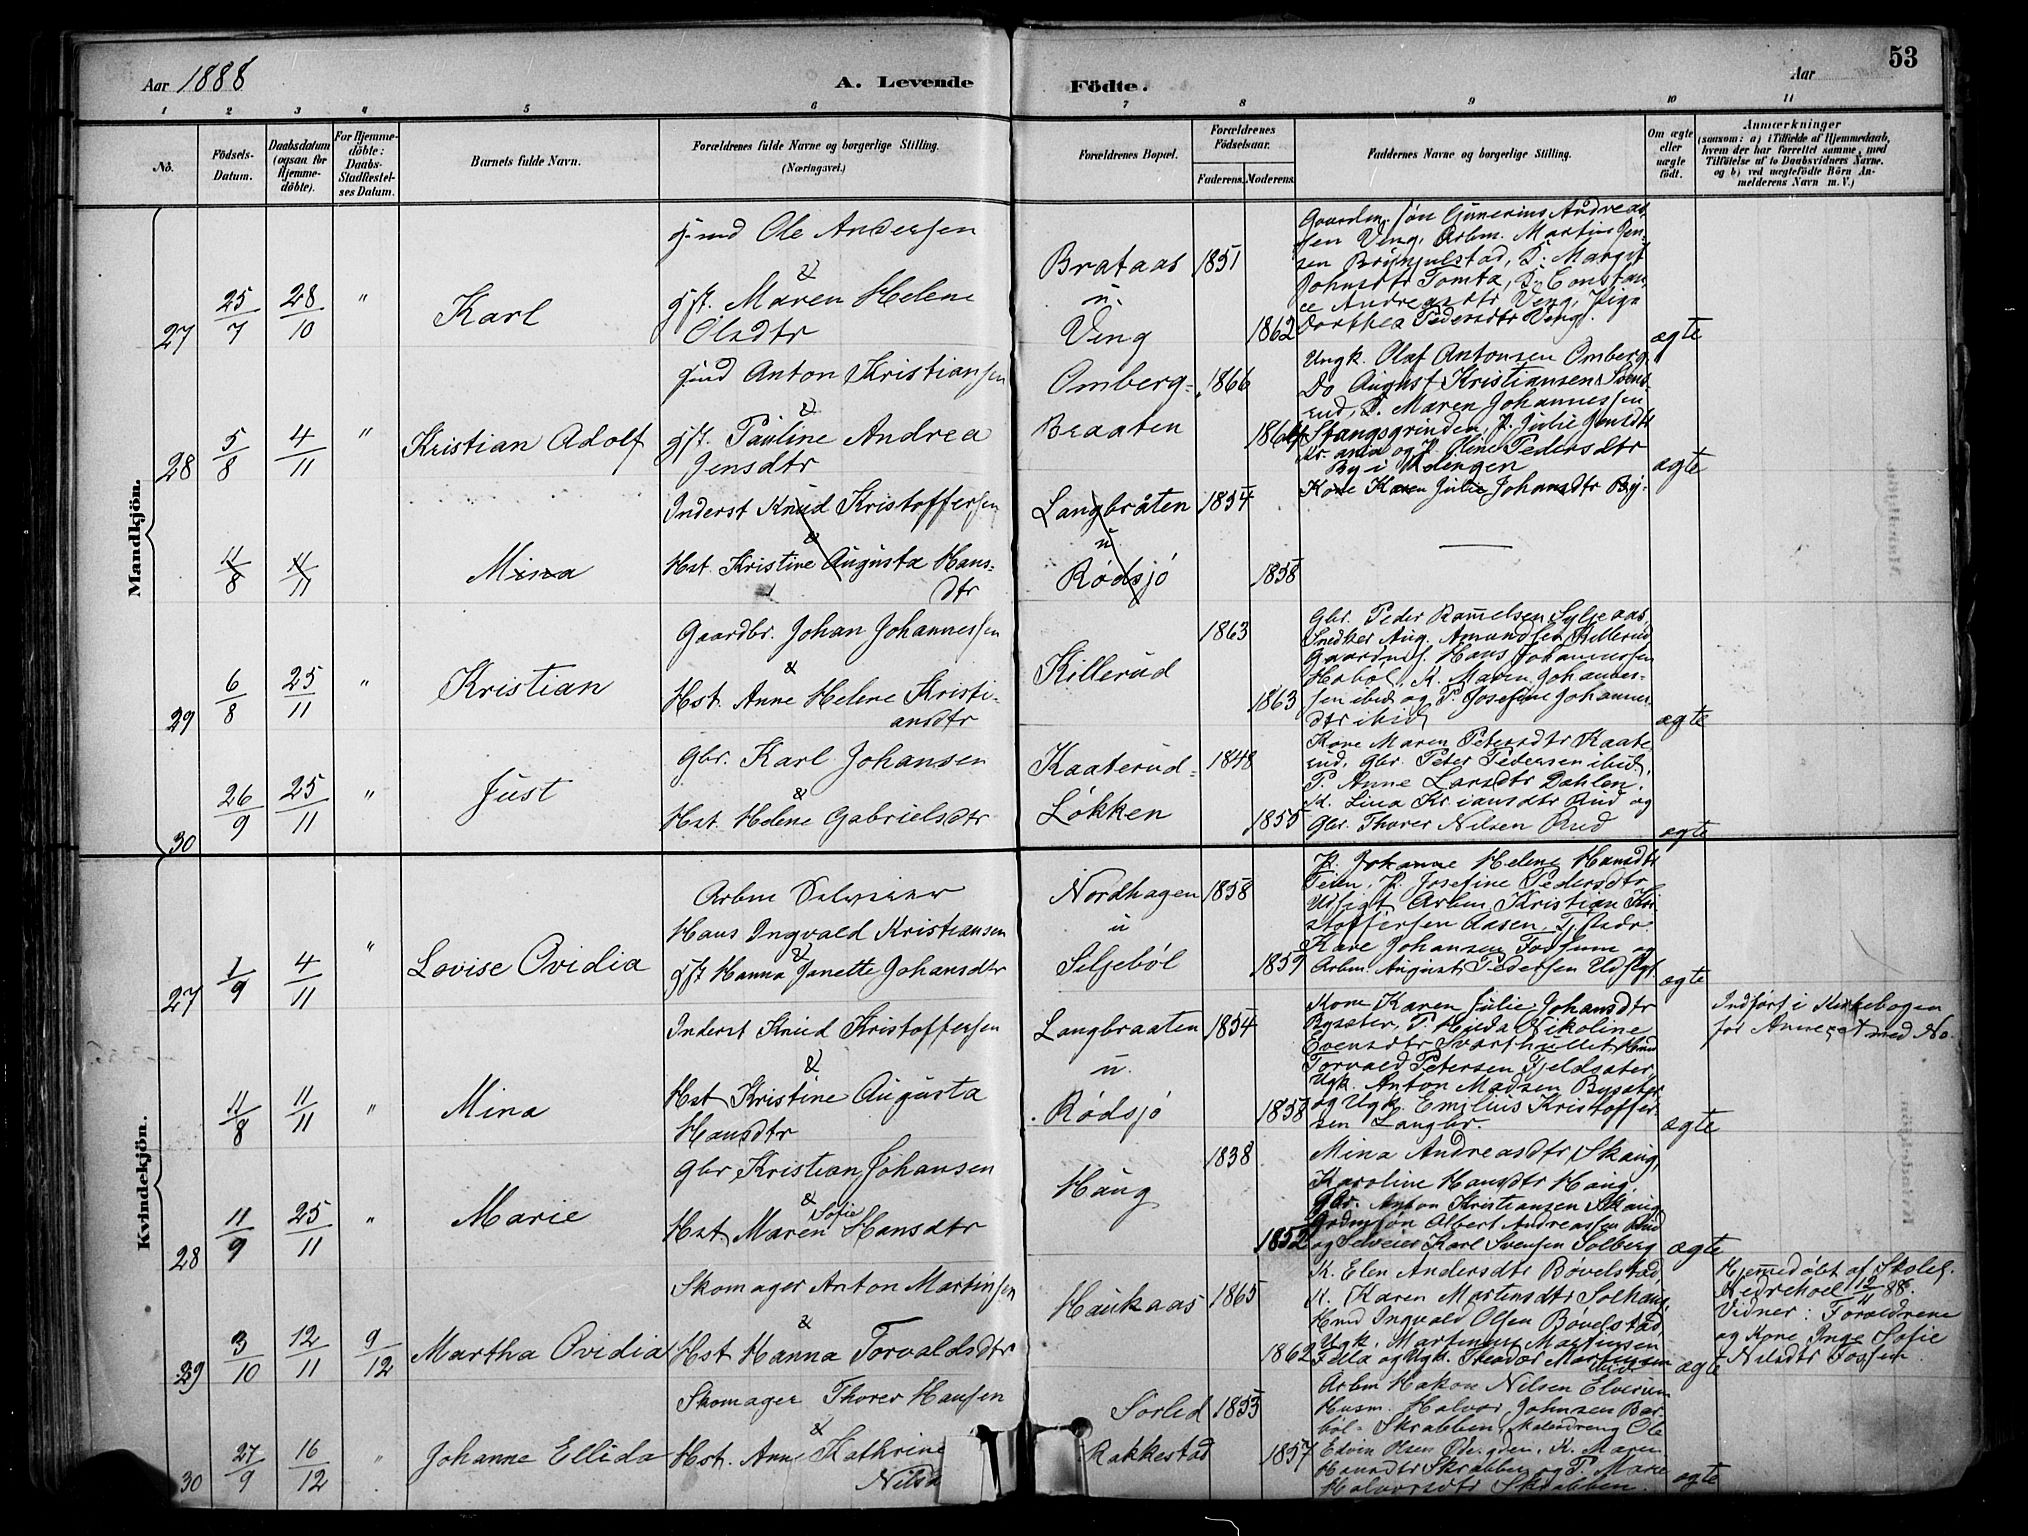 Aar 1888
A. Levende Födte.
Aar
53
1 2 3 4 5 6 7 8 9 10 11
No.
Födsels-Datum.
Daabsdatum (ogsaa for Hjemmedöbte).
For Hjemmedöbte: Daabs-Stadfæstelses Datum.
Barnets fulde Navn.
Forældrenes fulde Navne og borgerlige Stilling. (Næringsvei.)
Forældrenes Bopæl.
Forældrenes Födselsaar.
Faderens. Moderens.
Faddernes Navne og borgerlige Stilling.
Om ægte eller uægte födt.
Anmærkninger
(saasom: a) i Tilfælde af Hjemmedaab, hvem der har forrettet samme, med Tilföielse af to Daabsvidners Navne. og b) ved uægtefödte Börn Anmelderens Navn m. V.)
Mandkjön.
27
25/7
28/10
"
Karl
Ole Andersen
&
Maren Helene
Olsdtr
Brataas
u.
Veng
1851
1862
Gaardm. søn Gunerius Andreas
sen Veng, Arbm. Martin Jen
sen Brynjulstad, P. Margit
Johnsdtr Tomta, P. Constan
ce Andreasdtr Veng, Pige
Dorthea Pedersdtr Veng.
ægte
28
5/8
4/11
"
Kristian Adolf
Anton Kristiansen
&
Pauline Andrea
Jensdtr
Omberg-
Braaten
1866
1864
Ungk. Olaf Antonsen Omberg
Do August Kristiansen
rud, P. Maren Johannessen
Stangsgrinden, P. Julie Jensdtr
og P. Oline Pedersdtr
By i
Kone Karen Julie Johansdtr By-
ægte
11/8
11/11
Mina
Inderst Knud Kristoffersen
&
Hst. Kristine Augusta Hans-
dtr
Langbråten
u
Rødsjø
1854
1858
29
6/8
25/11
"
Kristian
Gaardbr. Johan Johannessen
&
Hst. Anne Helene Kristi-
ansdtr
Killerud
1863
1863
Gbr. Peder Syljeaas
Snedker Aug. Amundsen Killerud
Hans Johannessen
Hobøl, K. Maren Johannes-
sen ibid og P. Josefine Johannes
dtr ibid
ægte
30
26/9
25/11
"
Just
Gbr. Karl Johansen
&
Hst. Helene Gabrielsdtr
Kaaterud-
Løkken
1848
1855
Kone Maren Petersdtr Kaate
rud, Gbr. Peter Pedersen ibid,
P. Anne Larsdtr Dahlen,
K. Lina Kr.iansdtr Rud og
Gbr. Thorer Nilsen Rud
ægte
Kvindekjön.
27
1/9
4/11
"
Lovise Ovidia
Arbm
Hans Ingvald Kristiansen
&
Hanna Janette Johansdtr
Nordhagen
u
Seljebøl
1858
1859
P. Johanne Helene Hansdtr
Teien, P. Josefine Pedersdtr
Udsigt Arbm. Kristian Kri
stoffersen Aasen,
Kare Johansen Fossum og
Arbm. August Pedersen Udsigt
ægte
11/8
11/11
"
Mina
Inderst Knud Kristoffersen
&
Hst Kristine Augusta
Hansdtr
Langbraaten
u.
Rødsjø
1854
1858
Kone Karen Julie Johansdtr
Bysæter, P. Nikoline
Evensdtr Svarthullet,
Torvald Petersen Fjeldsæter
Ugk. Anton Madsen Bysæter
og Ugk. Emilius Kristoffer
sen Langbr.
ægte
Indført i Kirkebogen
for Annexet med No.
28
11/9
25/11
"
Marie
Gbr Kristian Johansen
&
Hst. Maren Sofie Hansdtr
Haug
1838
1852
Mina Andreasdtr Skaug,
Karoline Hansdtr Haug,
Gbr. Anton Kristiansen Skaug
Albert Andreassen Rud
og Selveier Karl Svensen Solberg
ægte
29
3/10
12/11
9/12
Martha Ovidia
Skomager Anton Martinsen
&
Hst Hanna Torvaldsdtr
Haukaas
1865
1862
K. Elen Andersdtr Bøvelstad,
K. Karen Martinsdtr Solhaug,
Ingvald Olsen Bøvelstad,
Ugk. Martinsen
og Ugk. Theodor Martinsen
ægte
Hjemmedøbt af Skolel.
Nedrehoel 12/11 88.
Vidner: Forældrene
og Kone Inge Sofie
Nilsdtr Fossen.
30
27/9
16/12
"
Johanne Ellida
Skomager Thorer Hansen
&
Hst. Anne Kathrine
Nilsd
Sorlid
Rakkestad
1853
1857
Arbm Hakon Nilsen Elverum
Husm. Halvor Johnsen Bar
bøl- Skrabben, Ole
Edvin Olsen K. Maren
Hansdtr Skrabben og P. Marie
Halvorsdtr Skrabben.
ægte